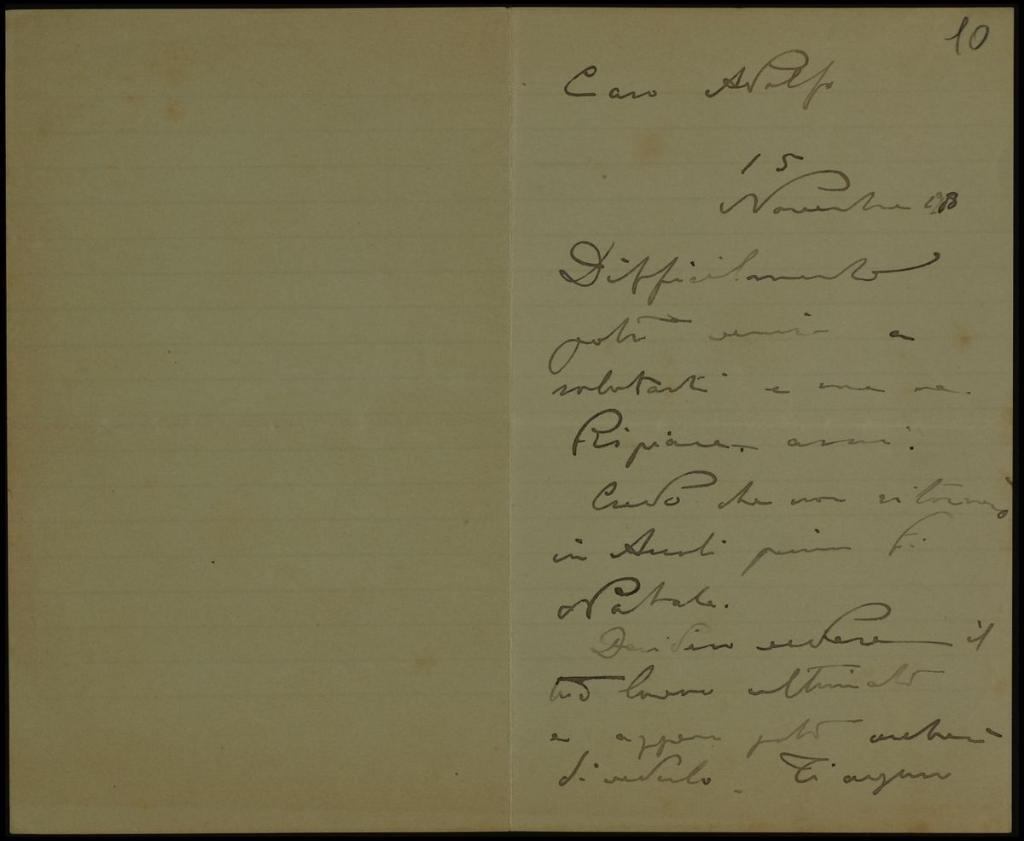 10
Caro Adolfo
15
Novembre
Difficilmente
potrò venir a
salutarti e me ne
assai.
Credo che non ritornerò
in Ascoli prima di
Natale.
Desidero vedere il
tuo lavoro ultimato
e appena potrò
di vederlo. Ti auguro